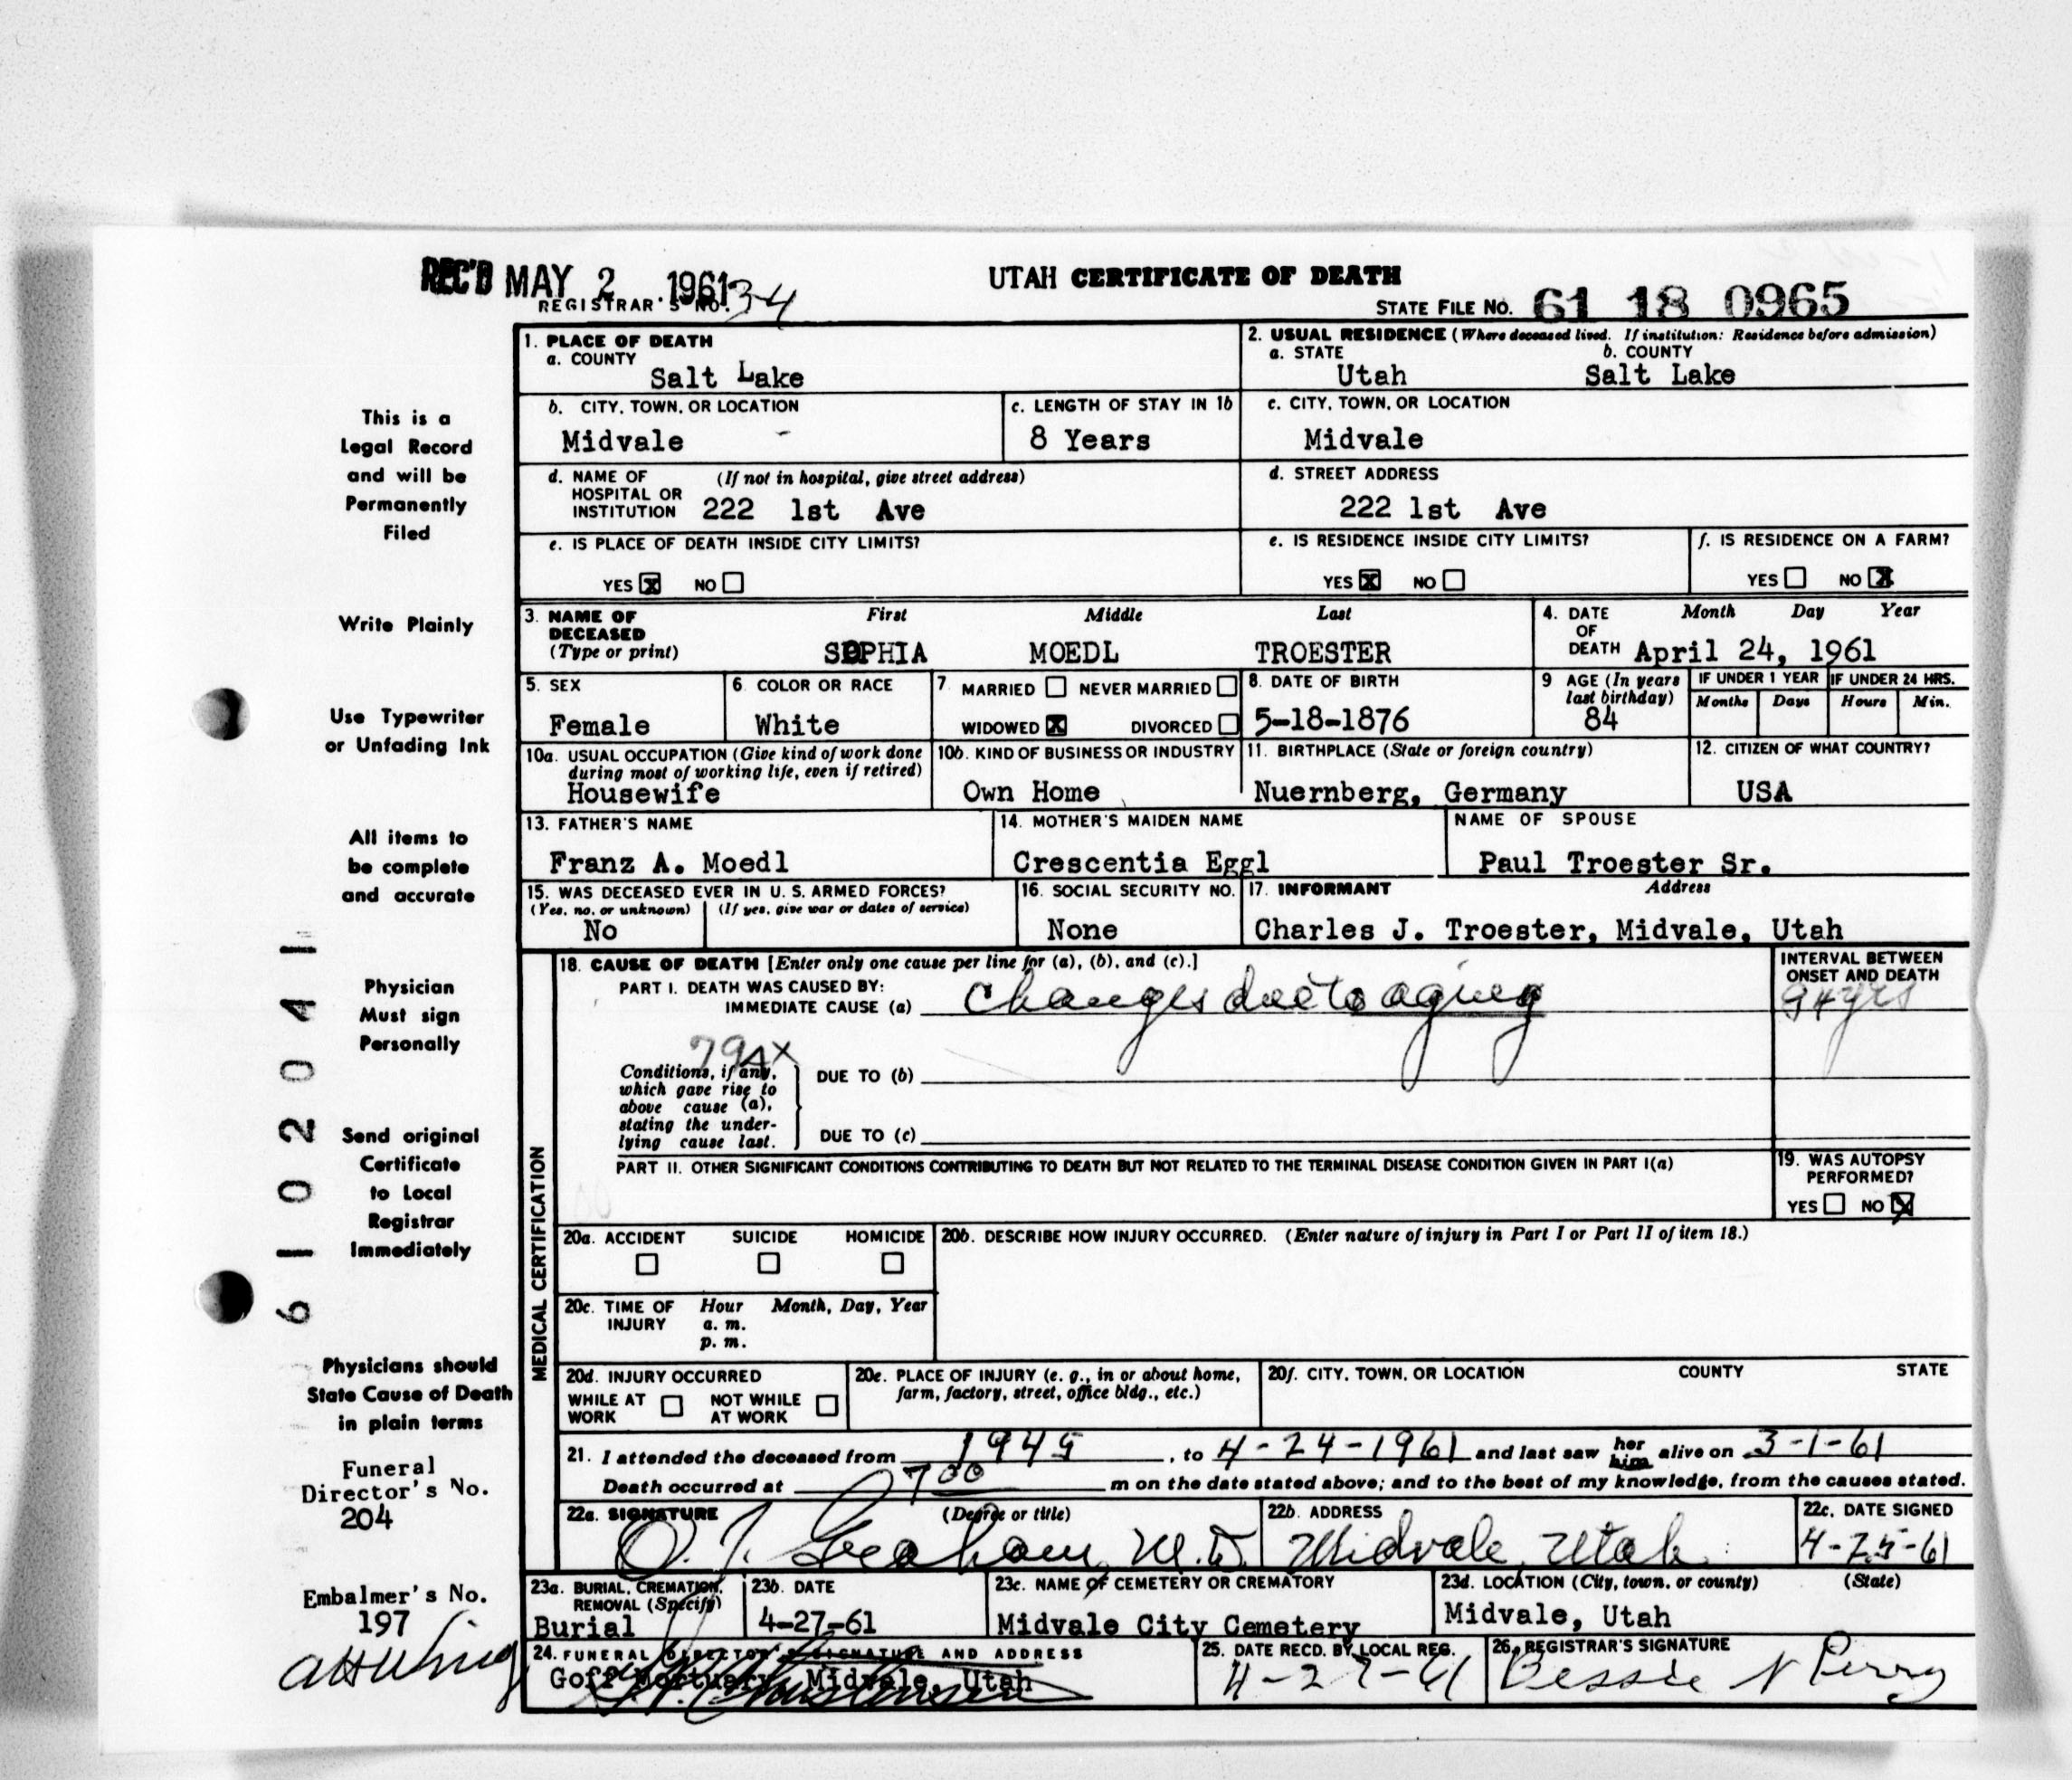 REC'D MAY 2 1961
REGISTRAR'S NO. 34
UTAH CERTIFICATE OF DEATH
STATE FILE NO. 61 18 0965
This is a
Legal Record
and will be
Permanently
Filed
Write Plainly
Use Typewriter
or Unfading Ink
All items to
be complete
and accurate
Physician
Must sign
Personally
Send original
Certificate
to Local
Registrar
Immediately
Physicians should
State Cause of Death
in plain terms
Funeral
Director's No.
204
Embalmer's No.
197
61 02041
1. PLACE OF DEATH
a. COUNTY
Salt Lake
2. USUAL RESIDENCE (Where deceased lived. If institution: Residence before admission)
a. STATE b. COUNTY
Utah Salt Lake
b. CITY, TOWN, OR LOCATION
Midvale
c. LENGTH OF STAY IN 1b
8 Years
c. CITY, TOWN, OR LOCATION
Midvale
d. NAME OF (If not in hospital, give street address)
HOSPITAL OR
INSTITUTION 222 1st Ave
d. STREET ADDRESS
222 1st Ave
e. IS PLACE OF DEATH INSIDE CITY LIMITS?
YES X NO
e. IS RESIDENCE INSIDE CITY LIMITS?
YES X NO
f. IS RESIDENCE ON A FARM?
YES NO X
3. NAME OF First Middle Last
DECEASED
(Type or print) SOPHIA MOEDL TROESTER
4. DATE Month Day Year
OF
DEATH April 24, 1961
5. SEX
Female
6 COLOR OR RACE
White
7 MARRIED NEVER MARRIED
WIDOWED X DIVORCED
8. DATE OF BIRTH
5-18-1876
9 AGE (In years
last birthday)
84
IF UNDER 1 YEAR
Months Days
IF UNDER 24 HRS.
Hours Min.
10a. USUAL OCCUPATION (Give kind of work done
during most of working life, even if retired)
Housewife
10b. KIND OF BUSINESS OR INDUSTRY
Own Home
11. BIRTHPLACE (State or foreign country)
Nuernberg, Germany
12. CITIZEN OF WHAT COUNTRY?
USA
13. FATHER'S NAME
Franz A. Moedl
14. MOTHER'S MAIDEN NAME
Crescentia Eggl
NAME OF SPOUSE
Paul Troester Sr.
15. WAS DECEASED EVER IN U. S. ARMED FORCES?
(Yes, no, or unknown) (If yes, give war or dates of service)
No
16. SOCIAL SECURITY NO.
None
17. INFORMANT Address
Charles J. Troester, Midvale, Utah
MEDICAL CERTIFICATION
18. CAUSE OF DEATH [Enter only one cause per line for (a), (b), and (c).]
PART I. DEATH WAS CAUSED BY:
IMMEDIATE CAUSE (a) Changes due to aging
INTERVAL BETWEEN
ONSET AND DEATH
yrs
Conditions, if any,
which gave rise to
above cause (a),
stating the under-
lying cause last.
DUE TO (b)
DUE TO (c)
PART II. OTHER SIGNIFICANT CONDITIONS CONTRIBUTING TO DEATH BUT NOT RELATED TO THE TERMINAL DISEASE CONDITION GIVEN IN PART I(a)
19. WAS AUTOPSY
PERFORMED?
YES NO X
20a. ACCIDENT SUICIDE HOMICIDE
20b. DESCRIBE HOW INJURY OCCURRED. (Enter nature of injury in Part I or Part II of item 18.)
20c. TIME OF Hour Month, Day, Year
INJURY a. m.
p. m.
20d. INJURY OCCURRED
WHILE AT NOT WHILE
WORK AT WORK
20e. PLACE OF INJURY (e. g., in or about home,
farm, factory, street, office bldg., etc.)
20f. CITY, TOWN, OR LOCATION COUNTY STATE
21. I attended the deceased from 1945, to 4-24-1961 and last saw her him alive on 3-1-61
Death occurred at 7 00 m on the date stated above; and to the best of my knowledge, from the causes stated.
22a. SIGNATURE (Degree or title)
O. J. Graham, M.D.
22b. ADDRESS
Midvale, Utah
22c. DATE SIGNED
4-25-61
23a. BURIAL, CREMATION,
REMOVAL (Specify)
Burial
23b. DATE
4-27-61
23c. NAME OF CEMETERY OR CREMATORY
Midvale City Cemetery
23d. LOCATION (City, town, or county) (State)
Midvale, Utah
24. FUNERAL DIRECTOR'S SIGNATURE AND ADDRESS
Goff Mortuary, Midvale, Utah
25. DATE RECD. BY LOCAL REG.
4-27-61
26. REGISTRAR'S SIGNATURE
Bessie N Perry